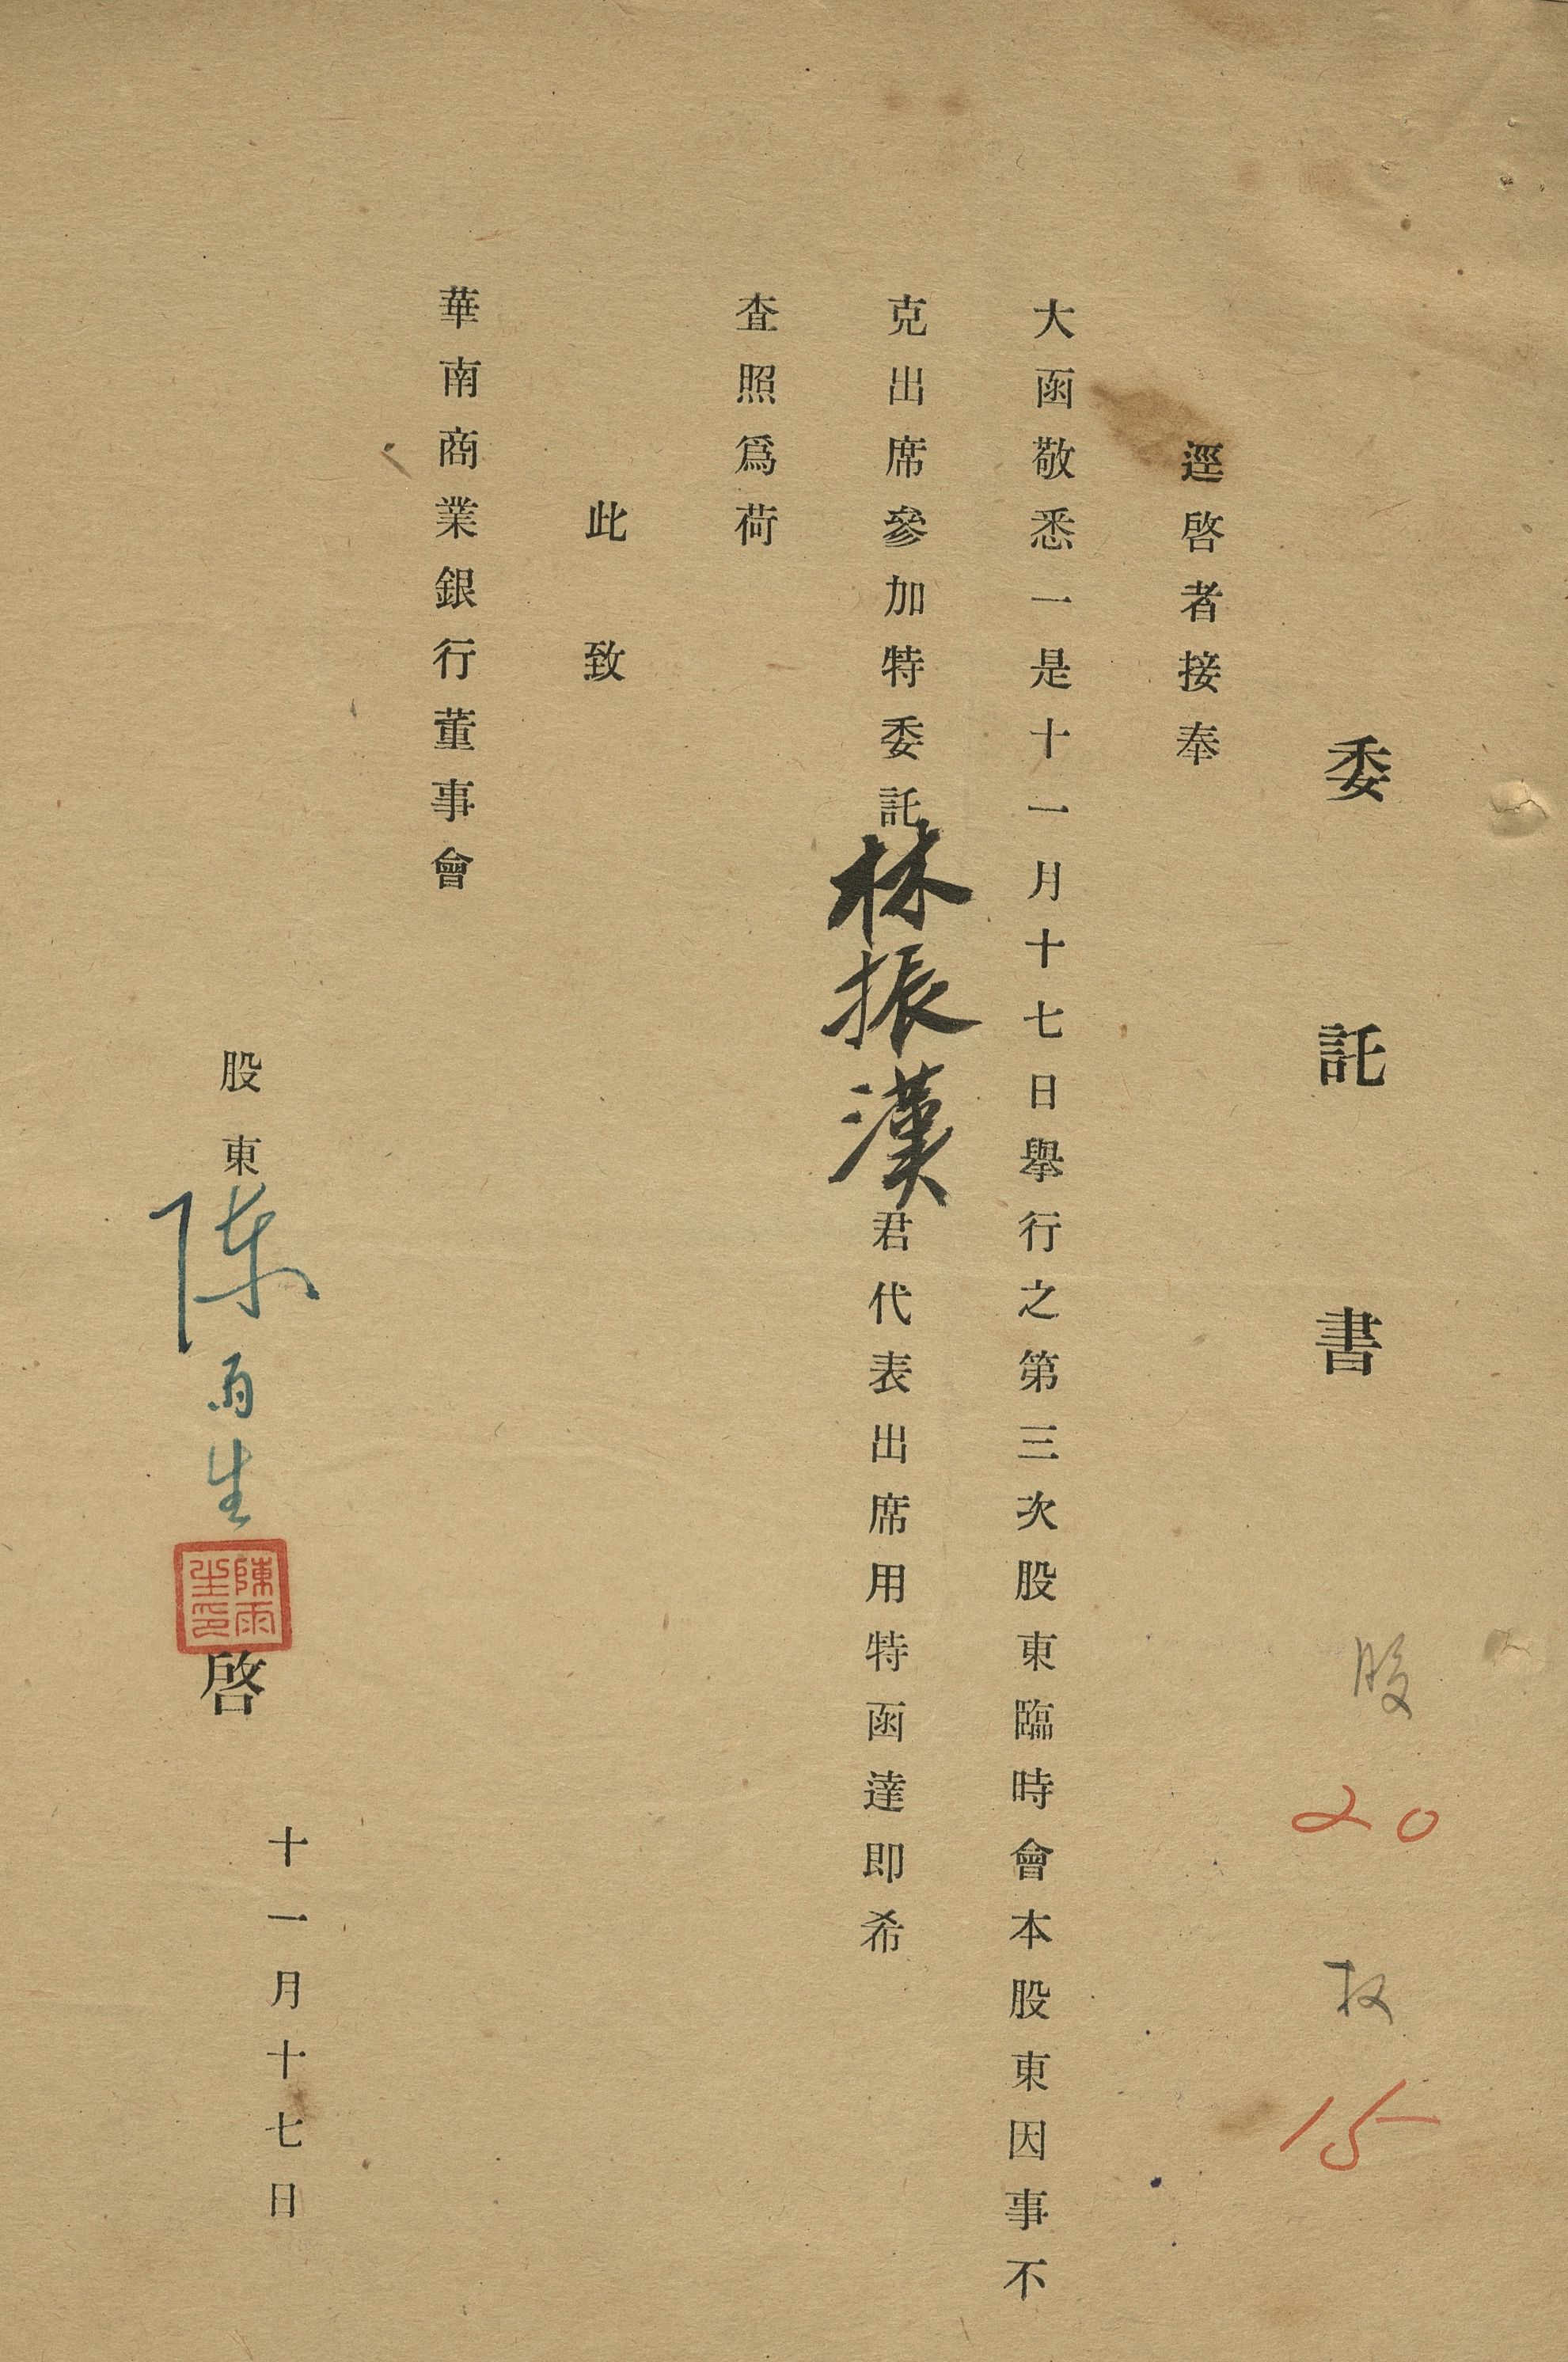 委託書
股 20 权 15
逕啓者接奉
大函敬悉一是十一月十七日舉行之第三次股東臨時會本股東因事不
克出席參加特委託林振漢君代表出席用特函達即希
査照爲荷
此致
華南商業銀行董事會
股東陈雨生啓
陳雨生印
十一月十七日